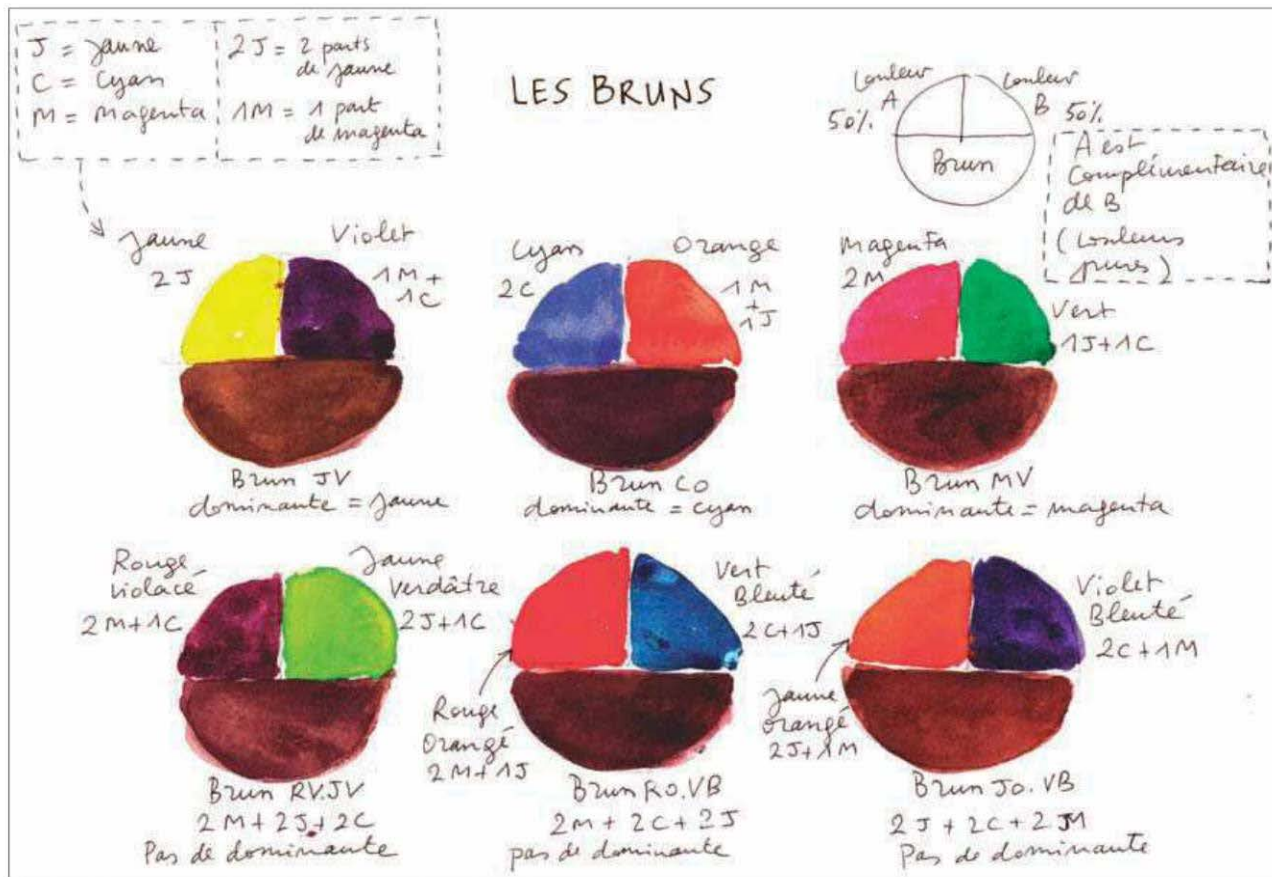 J = Jaune
C = Cyan
M = Magenta
2J = 2 parts
de jaune
1M = 1 part
de magenta
LES BRUNS
Couleur
A
50%
Couleur
B
50%
Brun
A est
Complémentaire
de B
(Couleurs
pures)
Jaune
2J
Violet
1M +
1C
Brun JV
dominante = jaune
Cyan
2C
Orange
1M
+
1J
Brun CO
dominante = cyan
Magenta
2M
Vert
1J+1C
Brun MV
dominante = magenta
Rouge
violacé
2M+1C
Jaune
Verdâtre
2J+1C
Brun RV.JV
2M+2J+2C
Pas de dominante
Rouge
Orangé
2M+1J
Vert
Bleuté
2C+1J
Brun RO.VB
2M+2C+2J
pas de dominante
Jaune
orangé
2J+1M
Violet
Bleuté
2C+1M
Brun JO.VB
2J+2C+2M
Pas de dominante